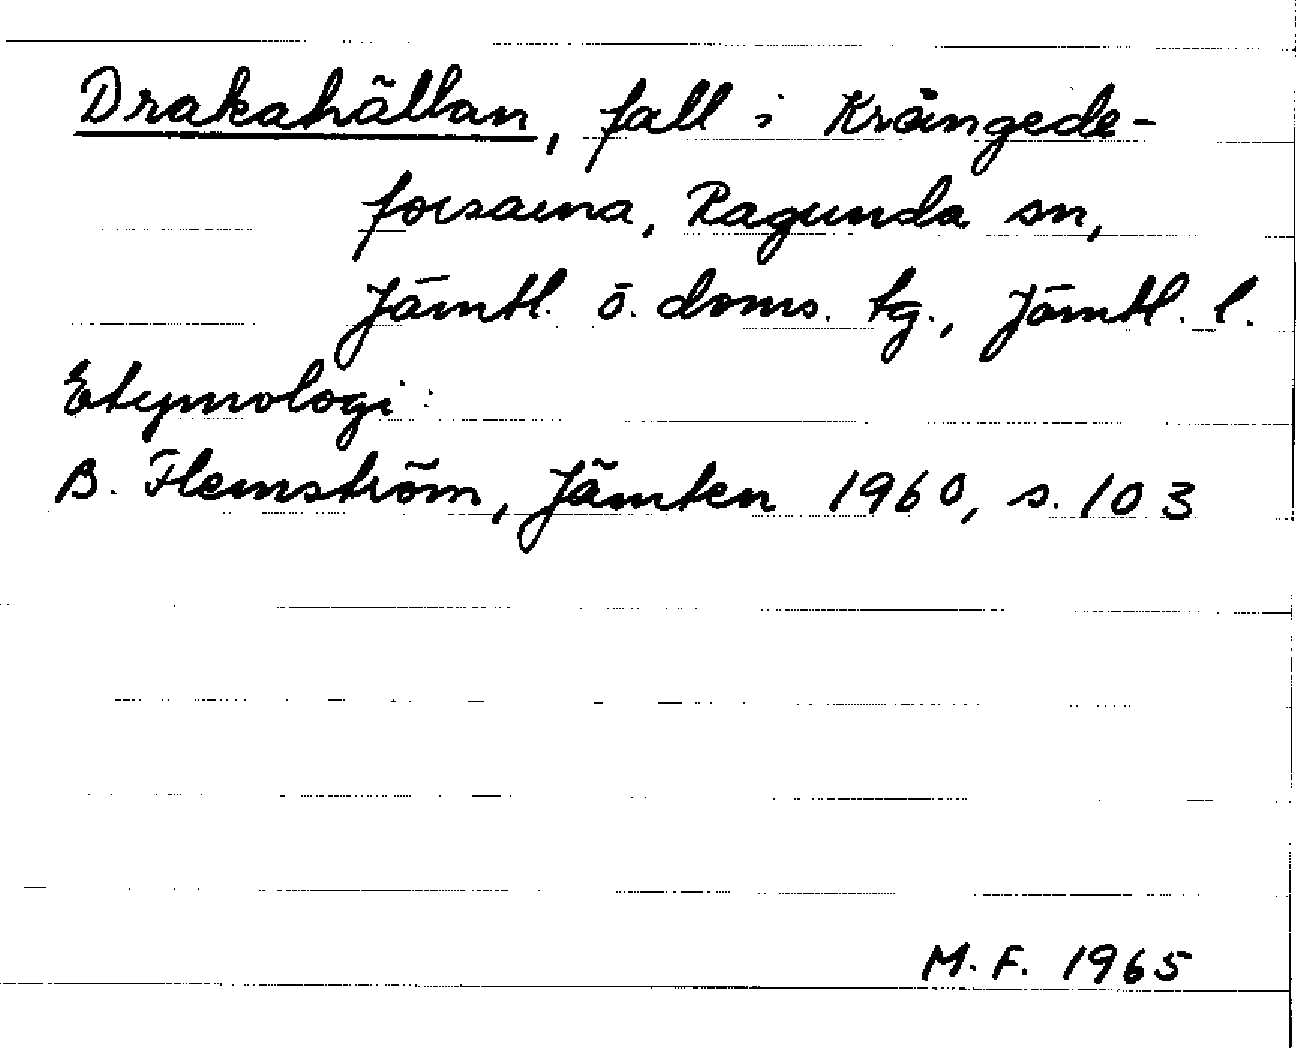 Drakahällan, fall i Krångede-
forsarna, Ragunda sn,
Jämtl. ö. doms. tg., Jämtl. l.
Etymologi:
B. Flemström, Jämten 1960, s. 103
M. F. 1965